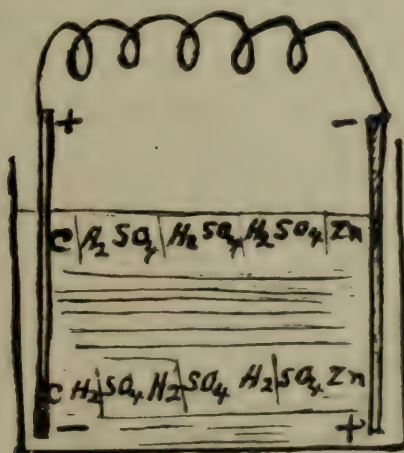 + -
C|H₂ SO₄|H₂ SO₄|H₂ SO₄|Zn
C H₂|SO₄ H₂|SO₄ H₂|SO₄ Zn
- +